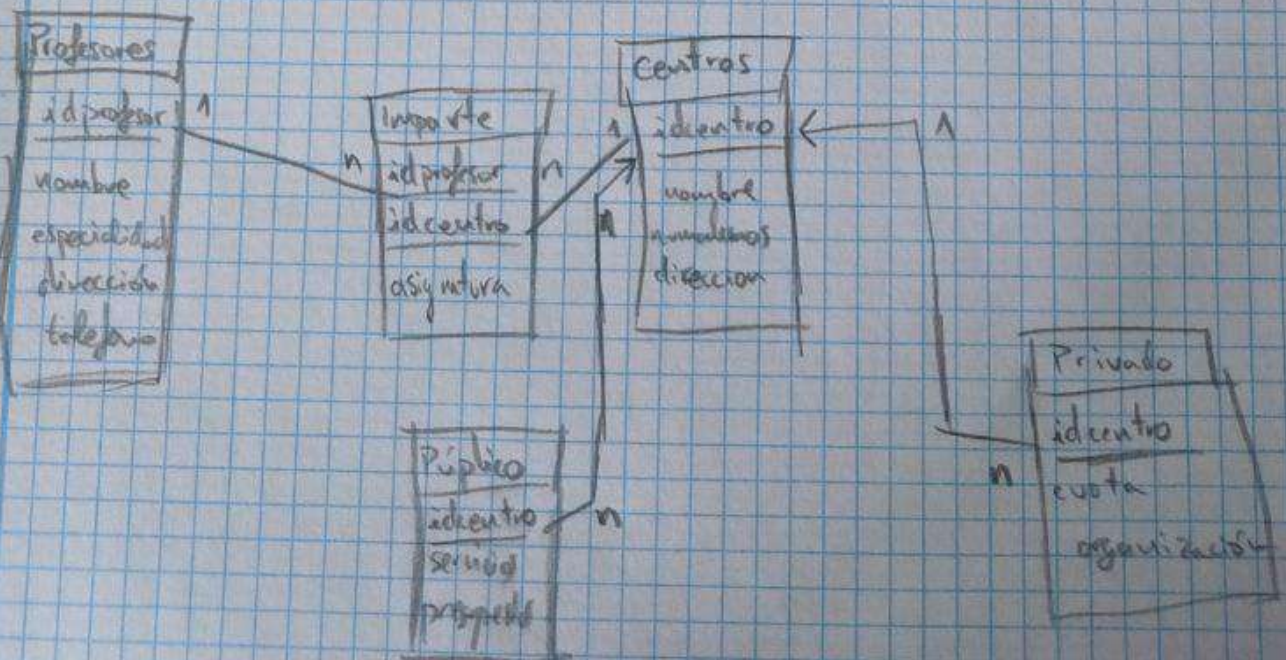 Profesores
idprofesor
nombre
especialidad
dirección
telefono
1
n
Importe
idprofesor
idcentro
asigntura
n
1
Centros
idcentro
nombre
numalumnos
direccion
1
n
Púplico
idcentro
n
1
Privado
idcentro
cuota
organización
n